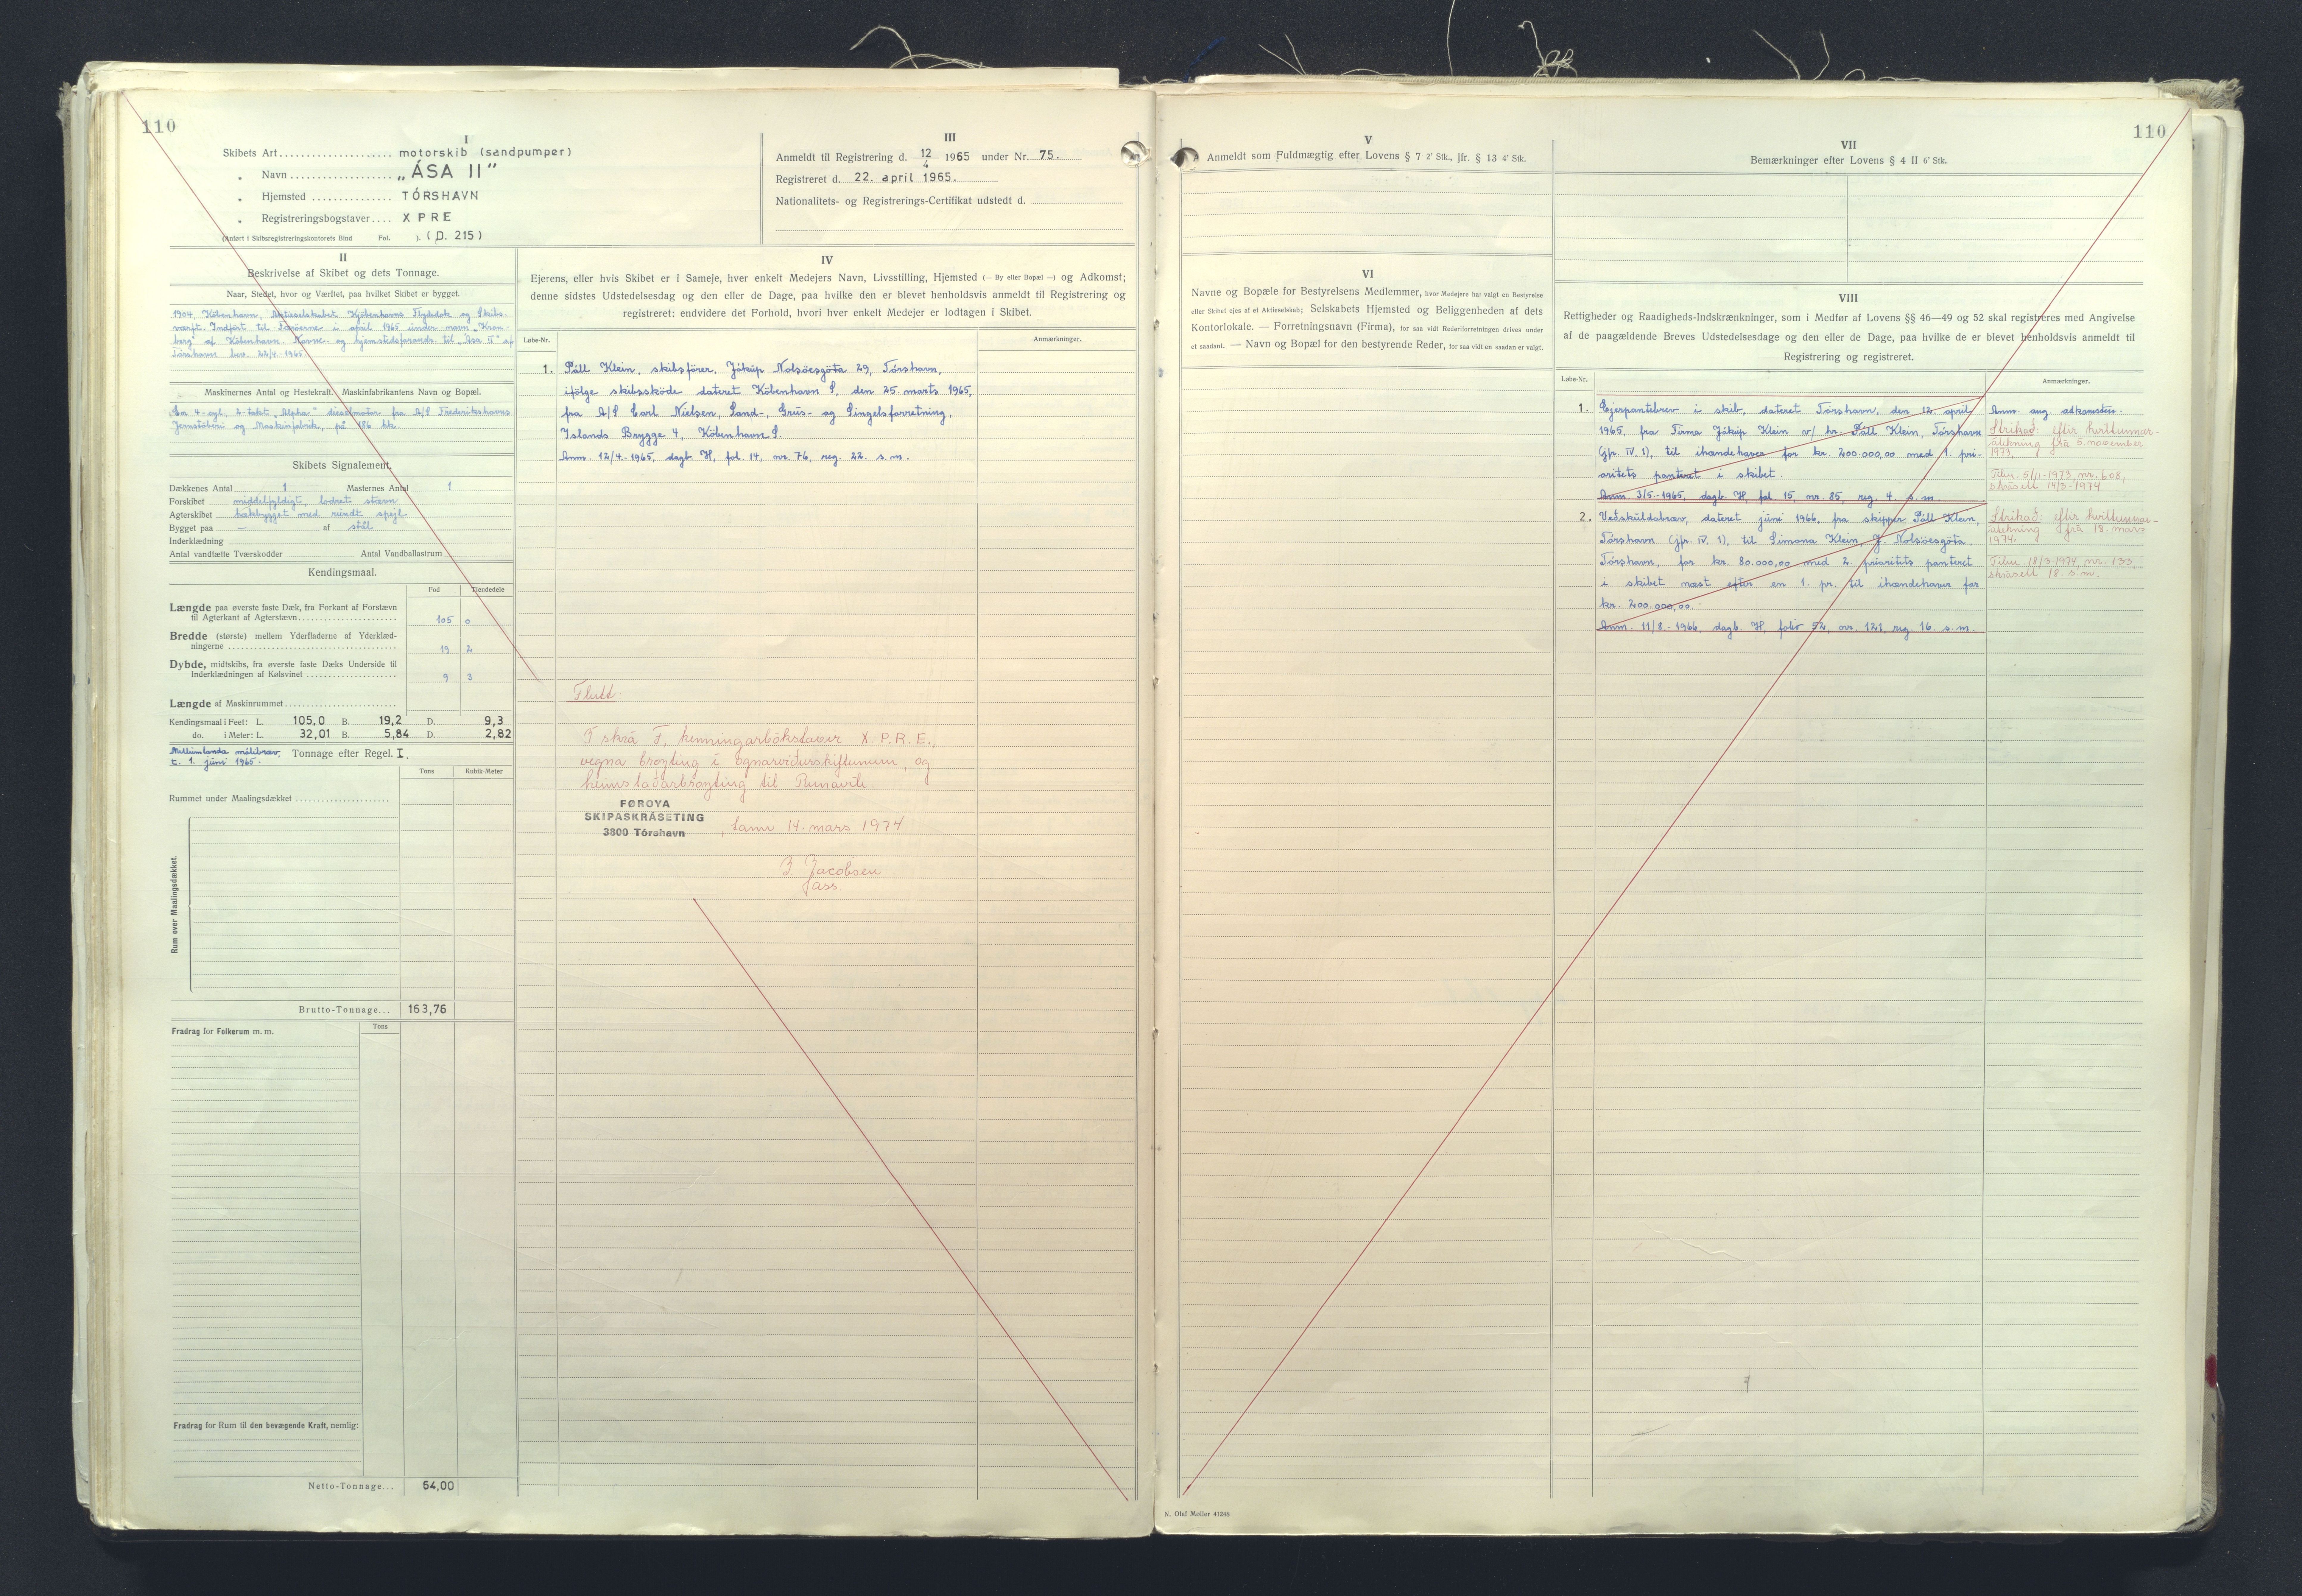 110
I
Skibets Art.................... motorskib (sandpumper)
„ Navn................... „ÁSA II"
„ Hjemsted .............. TÓRSHAVN
„ Registreringsbogstaver.... XPRE
(Anført i Skibsregistreringskontorets Bind Fol. ). (D. 215)
III
Anmeldt til Registrering d. 12/4 1965 under Nr. 75.
Registreret d. 22. april 1965.
Nationalitets- og Registrerings-Certifikat udstedt d.
II
Beskrivelse af Skibet og dets Tonnage.
Naar, Stedet, hvor og Værftet, paa hvilket Skibet er bygget.
1904, København, Aktieselskabet Kjøbenhavns Flydedok og Skibs-
værft. Indført til Færöerne i april 1965 under navn „Kron-
berg" af København. Navne- og hjemstedsforandr. til „Ása II" af
Tórshavn bev. 22/4-1965
Maskinernes Antal og Hestekraft. Maskinfabrikantens Navn og Bopæl.
Een 4-cyl. 2-takt „Alpha" dieselmotor fra A/S Frederikshavns
Jernstöberi og Maskinfabrik, på 186 hk.
Skibets Signalement.
Dækkenes Antal 1 Masternes Antal 1
Forskibet middelfyldigt, lodret stævn
Agterskibet hækbygget med rundt spejl.
Bygget paa — af stål
Inderklædning
Antal vandtætte Tværskodder Antal Vandballastrum
Kendingsmaal.
Fod Tiendedele
Længde paa øverste faste Dæk, fra Forkant af Forstævn
til Agterkant af Agterstævn.................... 105 0
Bredde (største) mellem Yderfladerne af Yderklæd-
ningerne .................... 19 2
Dybde, midtskibs, fra øverste faste Dæks Underside til
Inderklædningen af Kølsvinet .................... 9 3
Længde af Maskinrummet....................
Kendingsmaal i Feet: L. 105,0 B. 19,2 D. 9,3
do. i Meter: L. 32,01 B. 5,84 D. 2,82
Millumlanda málibræv
t. 1. júni 1965. Tonnage efter Regel. I.
Tons Kubik-Meter
Rummet under Maalingsdækket ....................
Rum over Maalingsdækket.
Brutto-Tonnage... 163,76
Fradrag for Folkerum m. m. Tons
Fradrag for Rum til den bevægende Kraft, nemlig:
Netto-Tonnage... 64,00
IV
Ejerens, eller hvis Skibet er i Sameje, hver enkelt Medejers Navn, Livsstilling, Hjemsted (— By eller Bopæl —) og Adkomst;
denne sidstes Udstedelsesdag og den eller de Dage, paa hvilke den er blevet henholdsvis anmeldt til Registrering og
registreret; endvidere det Forhold, hvori hver enkelt Medejer er lodtagen i Skibet.
Løbe-Nr. Anmærkninger.
1. Páll Klein, skibsförer, Jákup Nolsöesgöta 29, Tórshavn,
ifölge skibsskøde dateret København S, den 25. marts 1965,
fra A/S Carl Nielsen, Sand-, Grus- og Singelsforretning,
Islands Brygge 4, København S.
Anm. 12/4-1965, dagb. H, fol. 14, nr. 76, reg. 22. s.m.
Flutt:
Í skrá F, kenningarbókstavir X.P.R.E.,
vegna broyting i ognarviðurskiftunum, og
heimstaðarbroyting til Runavík.
FØROYA
SKIPASKRÁSETING
3800 Tórshavn , tann 14. mars 1974
J. Jacobsen
ass.
110
V
Anmeldt som Fuldmægtig efter Lovens § 7 2' Stk., jfr. § 13 4' Stk.
VI
Navne og Bopæle for Bestyrelsens Medlemmer, hvor Medejere har valgt en Bestyrelse
eller Skibet ejes af et Aktieselskab; Selskabets Hjemsted og Beliggenheden af dets
Kontorlokale. — Forretningsnavn (Firma), for saa vidt Rederiforretningen drives under
et saadant. — Navn og Bopæl for den bestyrende Reder, for saa vidt en saadan er valgt.
VII
Bemærkninger efter Lovens § 4 II 6' Stk.
VIII
Rettigheder og Raadigheds-Indskrænkninger, som i Medfør af Lovens §§ 46—49 og 52 skal registreres med Angivelse
af de paagældende Breves Udstedelsesdage og den eller de Dage, paa hvilke de er blevet henholdsvis anmeldt til
Registrering og registreret.
Løbe-Nr. Anmærkninger.
1. Ejerpantebrev i skib, dateret Tórshavn, den 12. april
1965, fra Firma Jákup Klein v/ hr. Páll Klein, Tórshavn
(jfr. IV. 1), til ihændehaver for kr. 200.000,00 med 1. pri-
oritets panteret i skibet.
Anm. 3/5-1965, dagb. H, fol 15, nr. 85, reg. 4. s.m.
Anm. ang. adkomsten.
Strikað: eftir kvittunnar-
áteknin frá 5. november
1973.
Tilur. 5/11-1973, nr. 608,
skrásett 14/3-1974
2. Veðskuldabræv, dateret júni 1966, fra skipper Páll Klein,
Tórshavn (jfr. IV. 1), til Simona Klein, J. Nolsöesgöta,
Tórshavn, for kr. 80.000,00 med 2. prioritets panteret
i skibet næst efter en 1. pr. til ihændehaver for
kr. 200.000,00.
Anm. 11/8-1966, dagb. H, folio 52, nr. 121, reg. 16. s.m.
Strikað: eftir kvittunnar-
átekning frá 18. mars
1974.
Tilur 18/3-1974, nr. 133,
skrásett 18. s.m.
N. Olaf Møller 41248